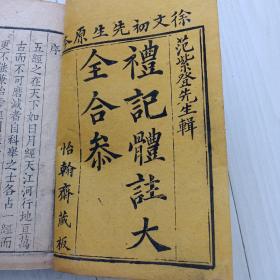 徐文初先生原本
范紫登先生輯
禮記體註大
全合叅
怡翰齋藏板
序
五經之在天下如日月經天江河行地亘萬
古而不可磨滅者自科舉之士各占一經而